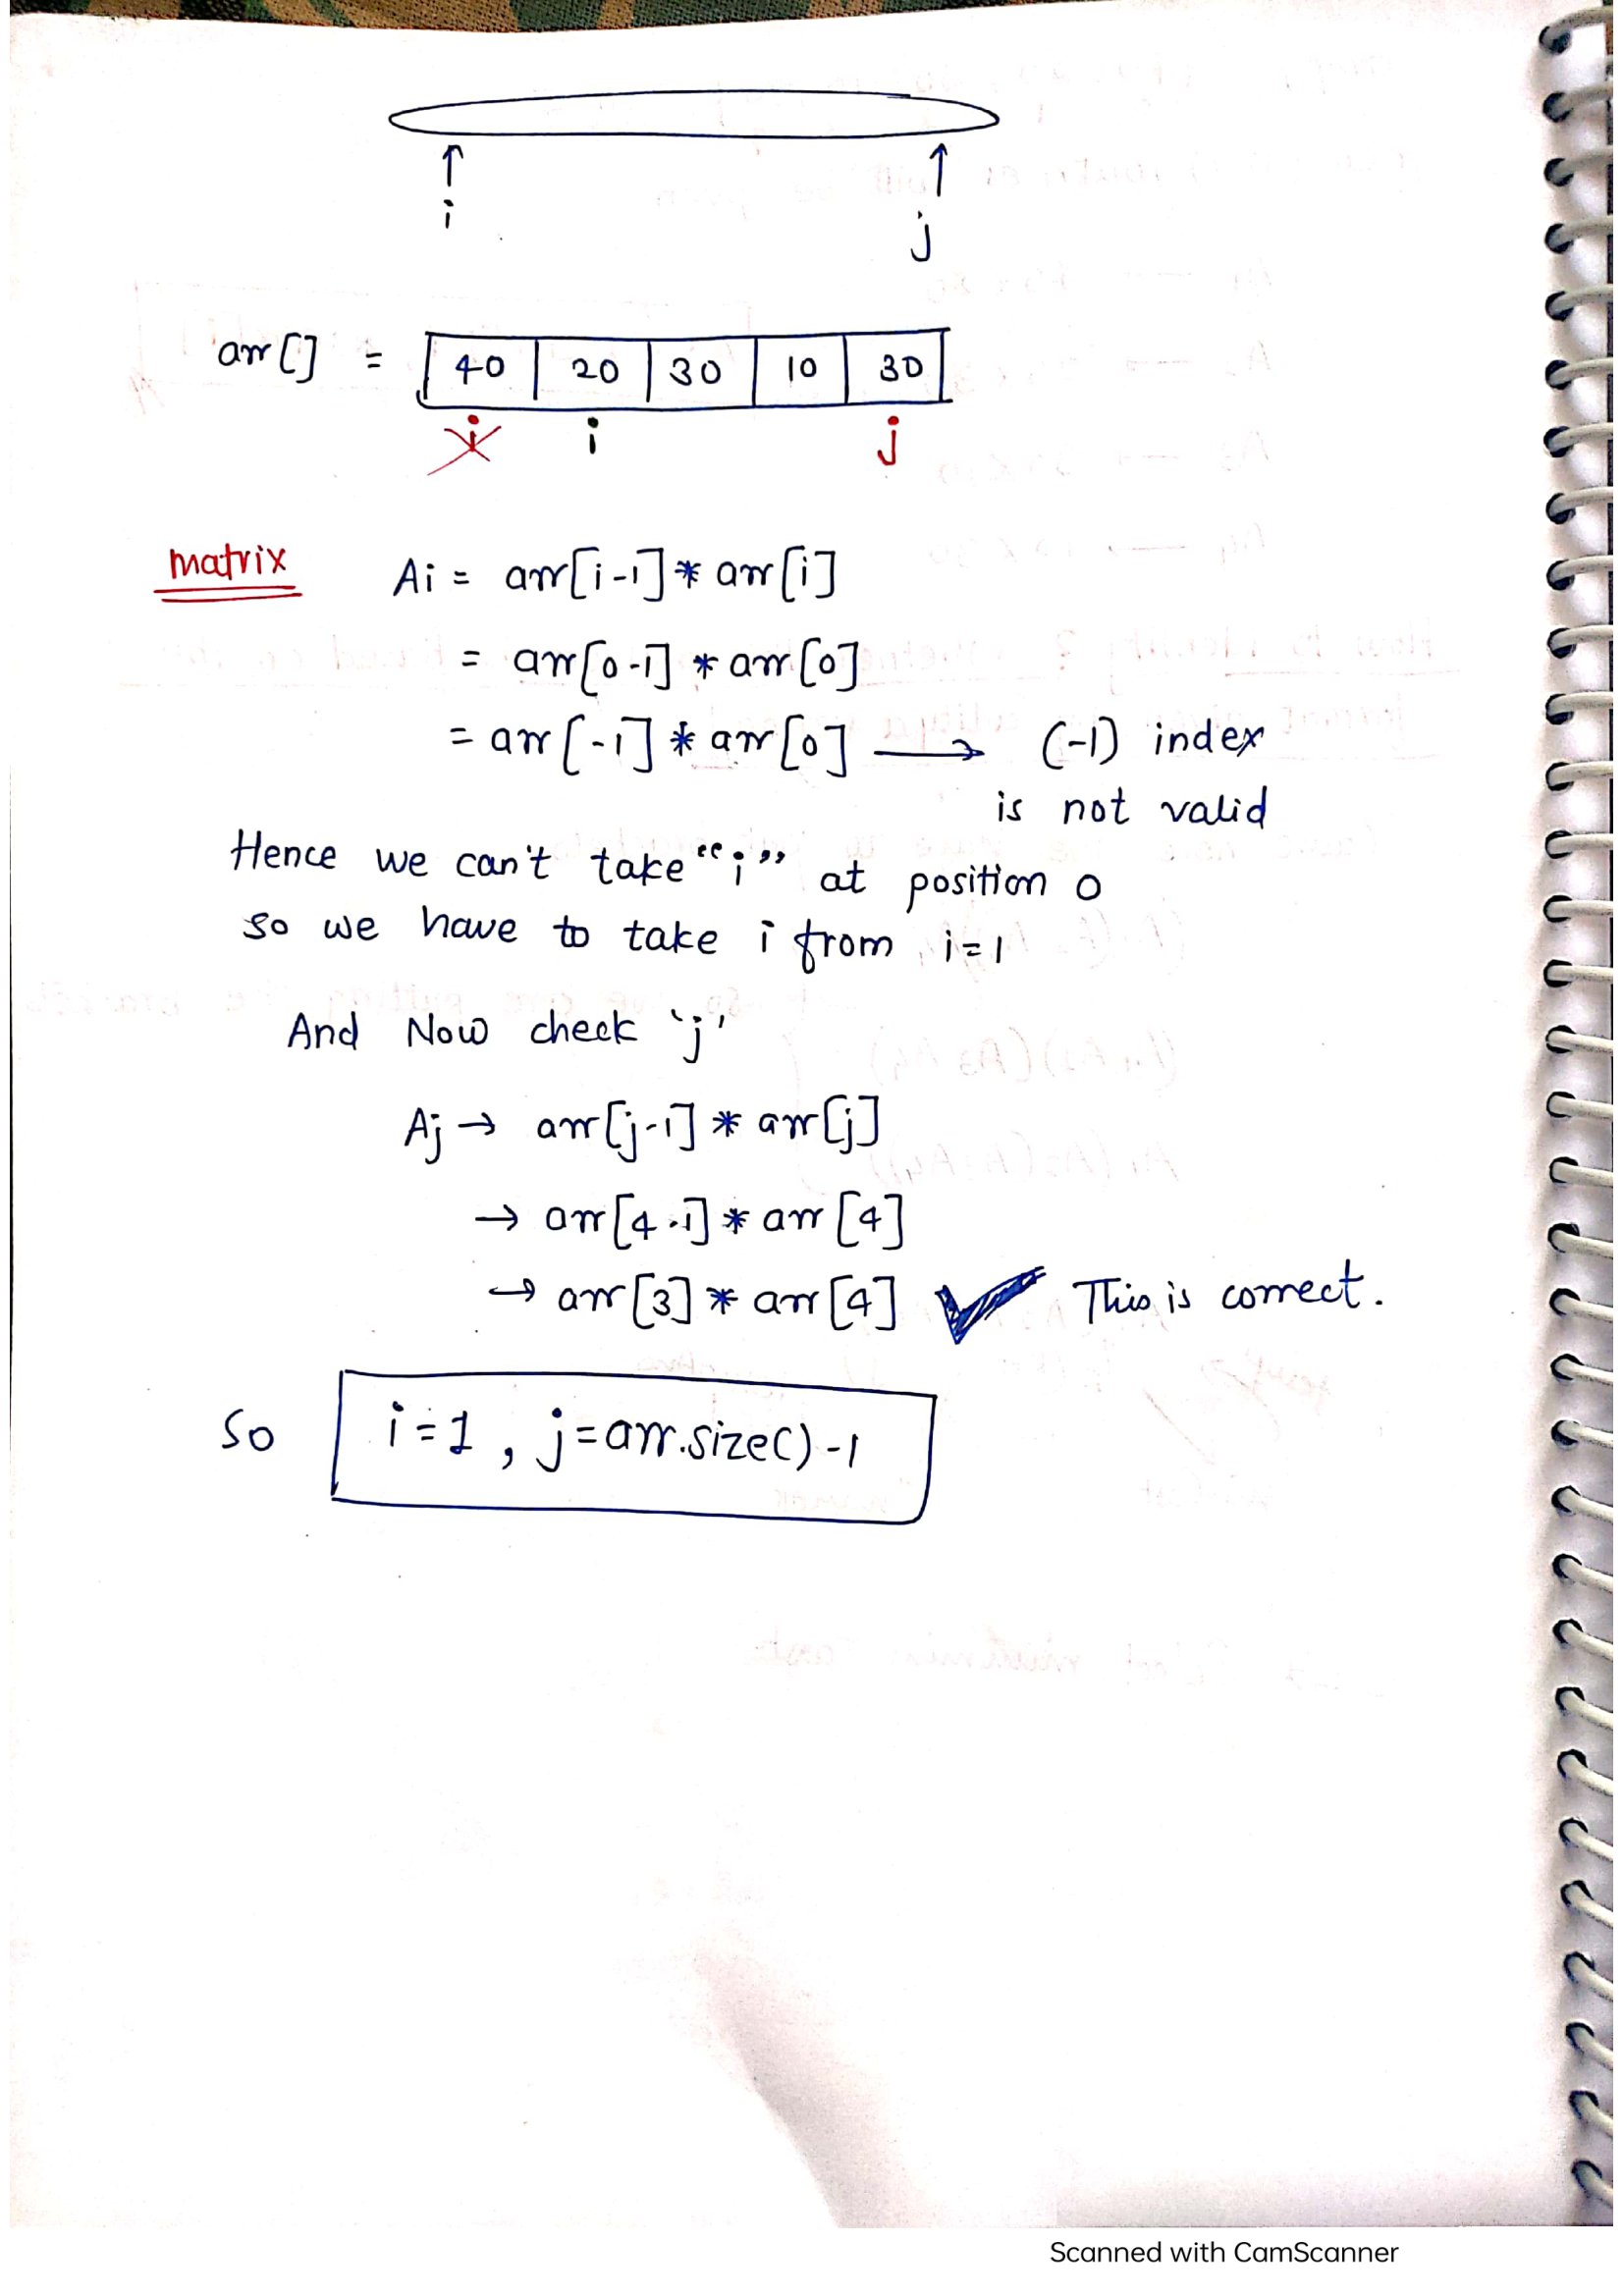 i
j
arr[] = 40 20 30 10 30
i i j
matrix Ai = arr[i-1] * arr[i]
= arr[0-1] * arr[0]
= arr[-1] * arr[0] → (-1) index
is not valid
Hence we can't take "i" at position 0
so we have to take i from i=1
And Now check 'j'
Aj → arr[j-1] * arr[j]
→ arr[4-1] * arr[4]
→ arr[3] * arr[4] ✓ This is correct.
So i=1, j=arr.size()-1
Scanned with CamScanner